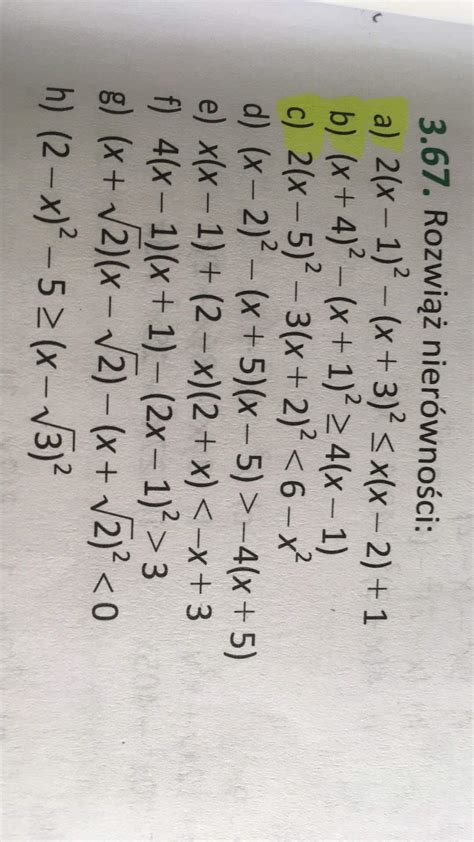 3.67. Rozwiąż nierówności:
a) 2(x − 1)² − (x + 3)² ≤ x(x − 2) + 1
b) (x + 4)² − (x + 1)² ≥ 4(x − 1)
c) 2(x − 5)² − 3(x + 2)² < 6 − x²
d) (x − 2)² − (x + 5)(x − 5) > −4(x + 5)
e) x(x − 1) + (2 − x)(2 + x) < −x + 3
f) 4(x − 1)(x + 1) − (2x − 1)² > 3
g) (x + √2)(x − √2) − (x + √2)² < 0
h) (2 − x)² − 5 ≥ (x − √3)²